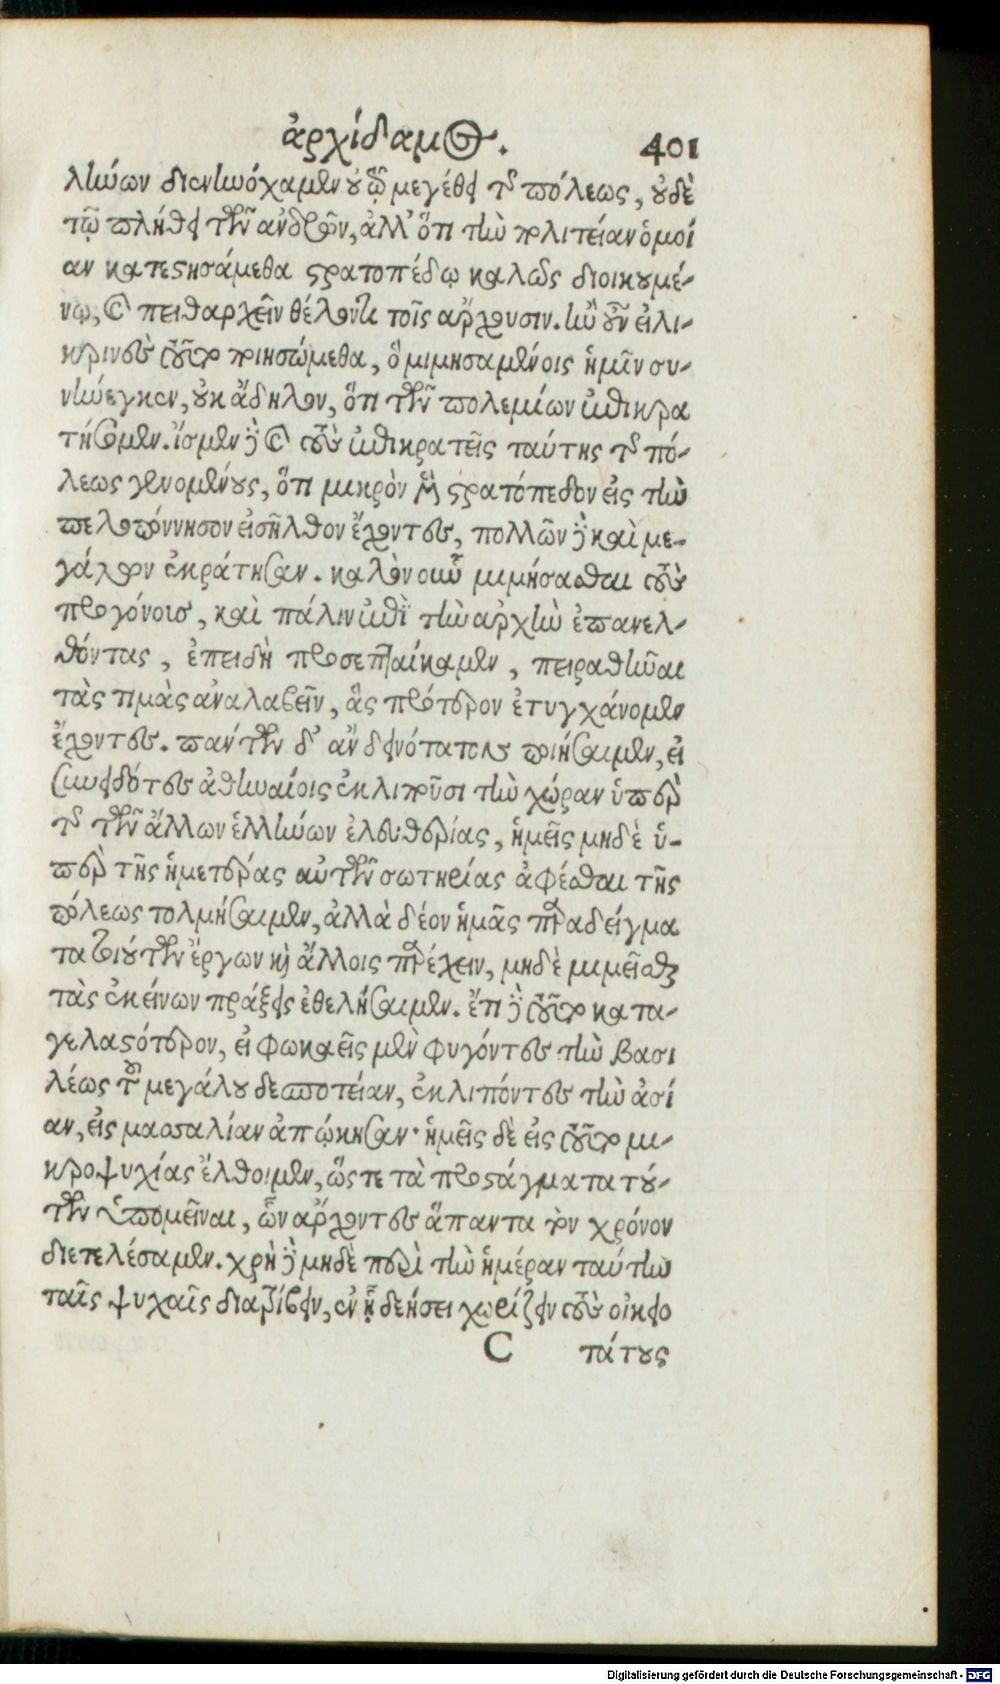 ἀρχίδαμος. 401
λήνων διενηνόχαμεν οὐ τῷ μεγέθει τῆς πόλεως, οὐδὲ
τῷ πλήθει τῶν ἀνδρῶν, ἀλλ' ὅτι τὴν πολιτείαν ὁμοί
αν κατεστησάμεθα στρατοπέδῳ καλῶς διοικουμέ-
νῳ, καὶ πειθαρχεῖν θέλοντι τοῖς ἄρχουσιν. ἢν οὖν εἰλι-
κρινὲς τοῦτο ποιησώμεθα, ὃ μιμησαμένοις ἡμῖν συ-
νήνεγκεν, οὐκ ἄδηλον, ὅτι τῶν πολεμίων ἐπικρα
τήσομεν. ἴσμεν γὰρ καὶ τοὺς ἐπικρατεῖς ταύτης τῆς πό-
λεως γενομένους, ὅτι μικρὸν μὲν στρατόπεδον εἰς τὴν
πελοπόννησον εἰσῆλθον ἔχοντες, πολλῶν γὰρ καὶ με-
γάλων ἐκράτησαν. καλὸν οὖν μιμήσασθαι τοὺς
προγόνους, καὶ πάλιν ἐπὶ τὴν ἀρχὴν ἐπανελ-
θόντας, ἐπειδὴ προσεπταίκαμεν, πειραθῆναι
τὰς τιμὰς ἀναλαβεῖν, ἃς πρότερον ἐτυγχάνομεν
ἔχοντες. πάντων δ' ἂν δεινότατον ποιήσαιμεν, εἰ
συνειδότες ἀθηναίοις ἐκλιποῦσι τὴν χώραν ὑπὲρ
τῆς τῶν ἄλλων ἑλλήνων ἐλευθερίας, ἡμεῖς μηδὲ ὑ-
πὲρ τῆς ἡμετέρας αὐτῶν σωτηρίας ἀφέσθαι τῆς
πόλεως τολμήσαιμεν, ἀλλὰ δέον ἡμᾶς παραδείγμα
τα τοιούτων ἔργων καὶ ἄλλοις παρέχειν, μηδὲ μιμεῖσθαι
τὰς ἐκείνων πράξεις ἐθελήσαιμεν. ἔτι γὰρ τοῦτο κατα-
γελαστότερον, εἰ φωκαεῖς μὲν φυγόντες τὴν βασι
λέως τοῦ μεγάλου δεσποτείαν, ἐκλιπόντες τὴν ἀσί
αν, εἰς μασσαλίαν ἀπῴκησαν· ἡμεῖς δὲ εἰς τοῦτο μι-
κροψυχίας ἔλθοιμεν, ὥστε τὰ προστάγματα τού-
των ὑπομεῖναι, ὧν ἄρχοντες ἅπαντα τὸν χρόνον
διετελέσαμεν. χρὴ γὰρ μηδὲ περὶ τὴν ἡμέραν ταύτην
ταῖς ψυχαῖς διατρίβειν, ἐν ᾗ δεήσει χωρίζειν τοὺς οἰκειο
C πάτους
Digitalisierung gefördert durch die Deutsche Forschungsgemeinschaft - DFG